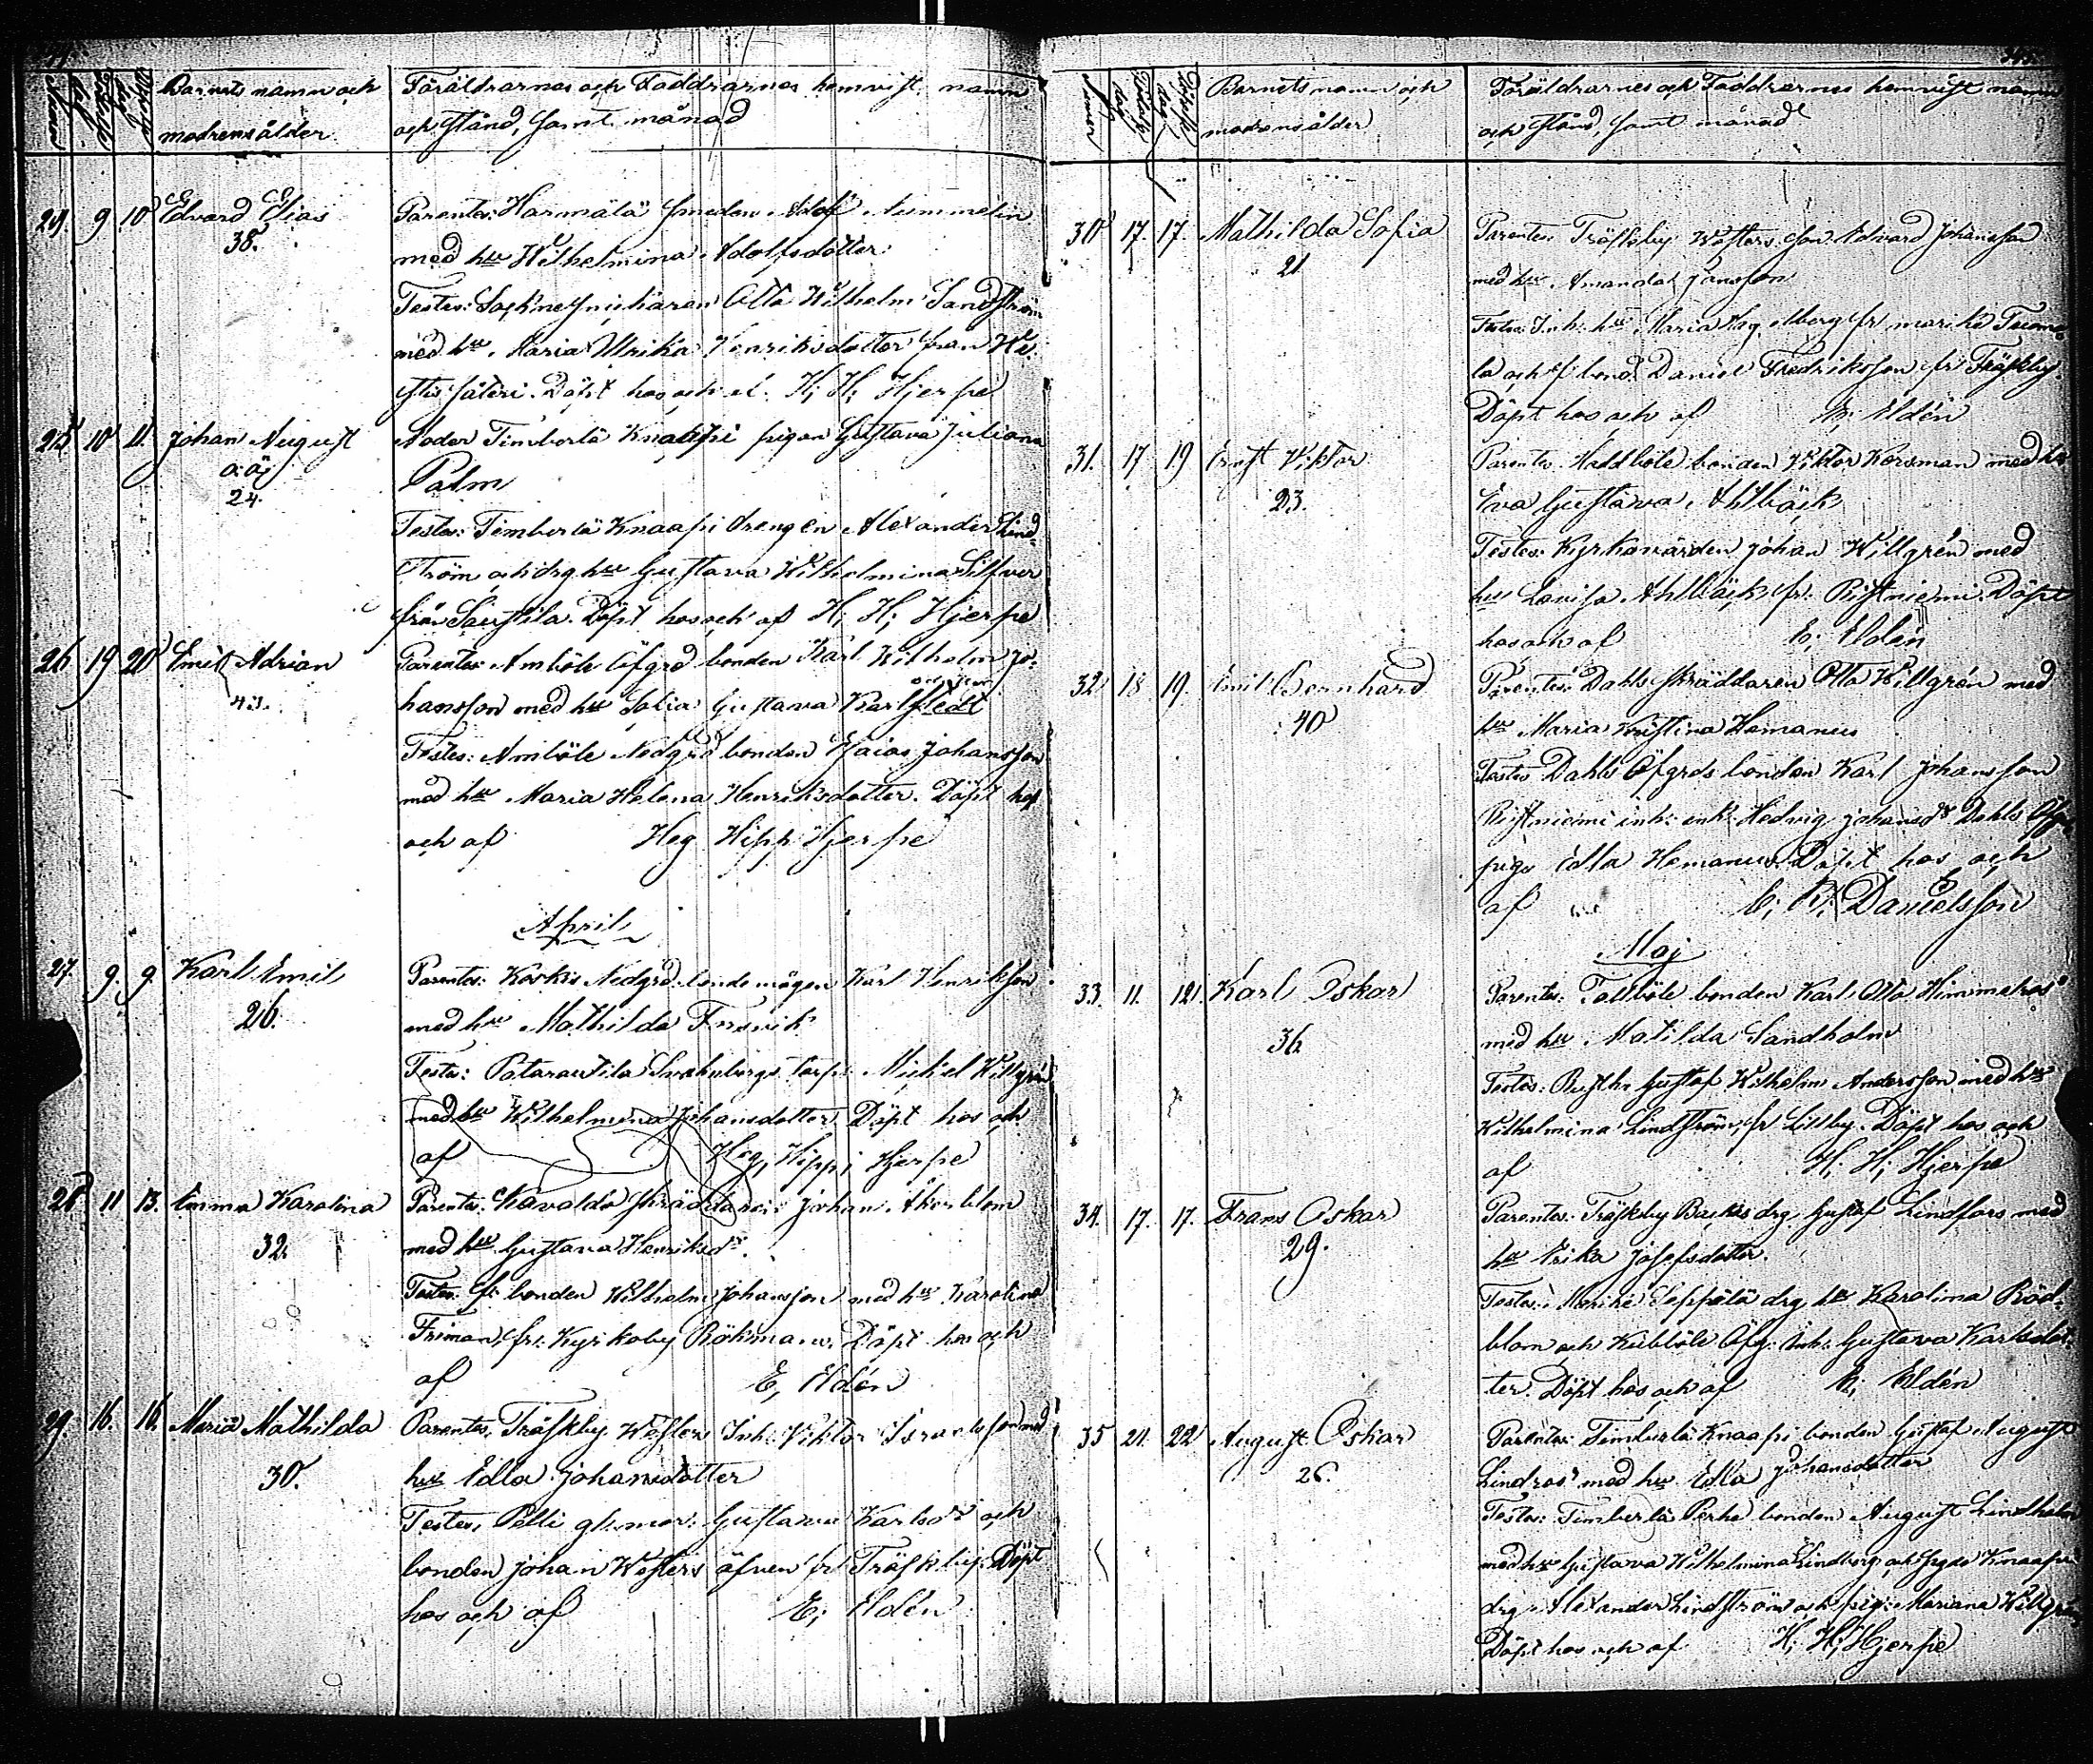 Barnets namn och
modrens ålder
Föräldrarnas och Faddrarnas hemvist, namn
och stånd, samt månad
24. 9 10 Edvard Elias
38.
Parentes: Harmälä smeden Adolf Nummelin
med hu Wilhelmina Adolfsdotter
Testes: Sockne snickaren Otto Wilhelm Sandström
med hu Maria Ulrika Henriksdotter från
säteri. Döpt hos och af H; H; Hjerpe
25 10 11. Johan August
o. äg
24.
Moder Timberlä Knaapi pigan Gustava Juliana
Palm
Testes: Timberlä Knaapi drengen Alexander Lind-
ström och drg. hu Gustava Wilhelmina Silfver
från Saustila. Döpt hos och af H; H; Hjerpe
26 19 20 Emil Adrian
43.
Parentes: Amböle Öfgrd bonden Karl Wilhelm Jo-
hansson med hu Sofia Gustava Karlstedt
Testes: Amböle Nedgrd bonden Esaias Johansson
med hu Maria Helena Henriksdotter. Döpt hos
och af Heg Hipp Hjerpe
April
27. 9. 9. Karl Emil
26.
Parentes: Koskis Nedgrd. bonde mågen Karl Henriksson
med hu Mathilda
Testes: Patarautila torp. Mickel Willgrén
med hu Wilhelmina Johansdotter Döpt hos och
af Heg, Hipp; Hjerpe
28 11 13. Emma Karolina
32
Parentes: Kavaldå skräddare Johan Åkerblom
med hu Gustava Henriksdr.
Testes. bonden Wilhelm Johansson med hu Karolina
Friman, fr. Kyrkoby Rökman. Döpt hos och
af E, Eldén
29. 16. 16. Maria Mathilda
30.
Parentes, Träskby Westers Inh. Viktor Israelsson med
hu Edla Johansdotter
Testes, Pelli gl. mor. Gustava Karlsdr och
bonden Johan Westers äfven fr Träskby. Döpt
hos och af E; Eldén
Barnets namn och
modrens ålder
Föräldrarnes och Faddrarnes hemvist namn
och stånd, samt månad
30 17. 17. Mathilda Sofia
21
Parentes Träskby Westers son Edvard Johansson
med hu Amanda Jansson
Testes: Inh. hu Maria fr marike Tuomo-
la och f. bond. Daniel Fredriksson fr Träskby.
Döpt hos och af E; Eldén
31. 17 19 Ernst Viktor
23.
Parentes. Haddböle bonden Viktor Korsman med hu
Eva Gustava Ahlbäck
Testes: Kyrkovärden Johan Willgrén med
hu Lovisa Ahlbäck fr. Ristniemi. Döpt
hos och af E; Eldén
32 18 19. Emil Bernhard
40
Parentes: Dahls skräddaren Otto Willgrén med
hu Maria Kristina Hemanus
Testes Dahls Öfgrds bonden Karl Johansson
Ristniemi inh. enk. Hedvig Johansdr Dahls Öfgr
piga Edla Hemanus. Döpt hos och
af C; R; Danielsson
Maj
33. 11. 12. Karl Oskar
36
Parentes. Tallböle bonden Karl Otto Himmelroos
med hu Matilda Sandholm
Testes. Rusth. Gustaf Wilhelm Andersson med hu
Wilhelmina Lindström, fr Lillby. Döpt hos och
af H; H; Hjerpe
34. 17. 17. Frans Oskar
29.
Parentes. Träskby Backs drg. Gustaf Lindfors med
hu Erika Josefsdotter.
Testes. Marike Seppälä drg hu Karolina Röd-
blom och Kubböle Öfg. inh. Gustava Karlsdot-
ter. Döpt hos och af E; Eldén
35 21. 22 August Oskar
26
Parentes: Timberlä Knaapi bonden Gustaf August
Lindroos med hu Edla Johansdotter
Testes: Timberlä Perhe bonden August Lindholm
med hu Gustava Wilhelmina Lindberg och Knaapi
drg. Alexander Lindström och pig. Mariana Willgrén
Döpt hos och af H; H; Hjerpe